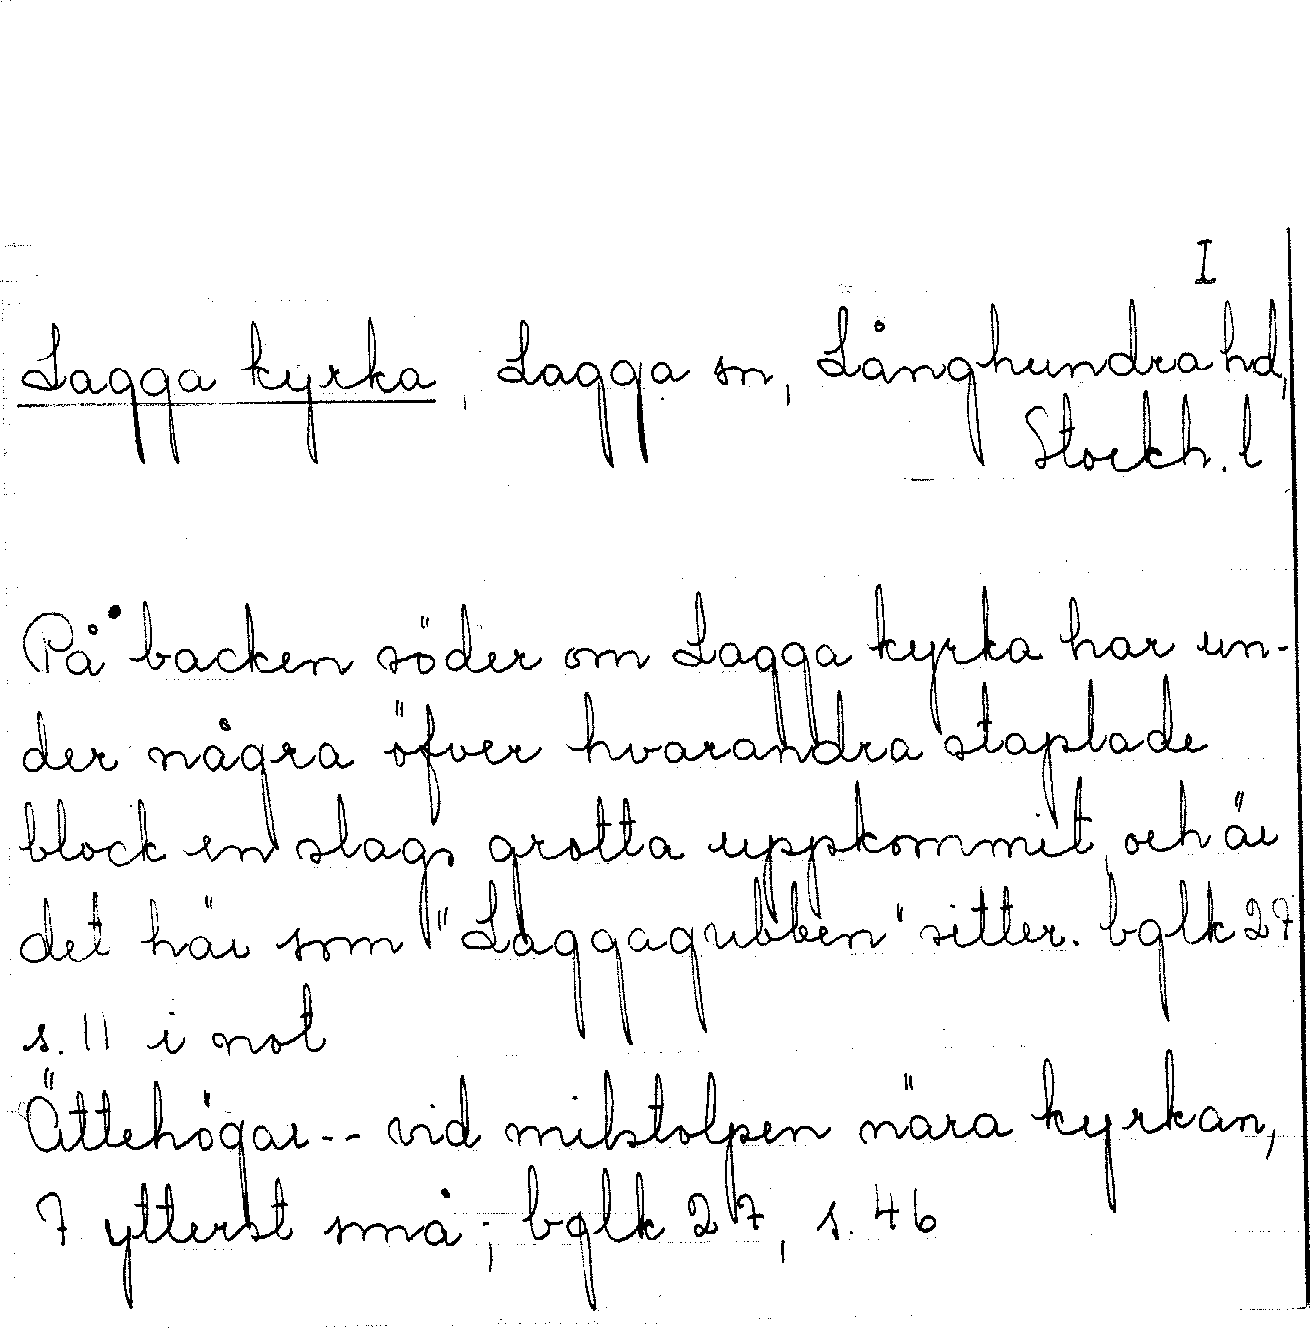 I
Lagga kyrka, Lagga sn, Långhundra hd,
Stockh. l
På backen söder om Lagga kyrka har un-
der några öfver hvarandra staplade
block en slags grotta uppkommit, och är
det här som "Laggagubben" sitter. bglk 27
s. 11 i not
Ättehögar -- vid milstolpen nära kyrkan,
7 ytterst små; bglk 27, s. 46